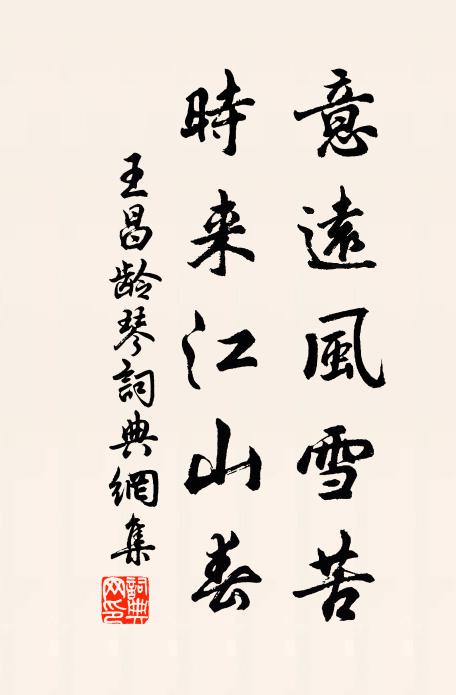 意遠風雪苦
時来江山春
王昌龄琴詞典網集
詞典網印